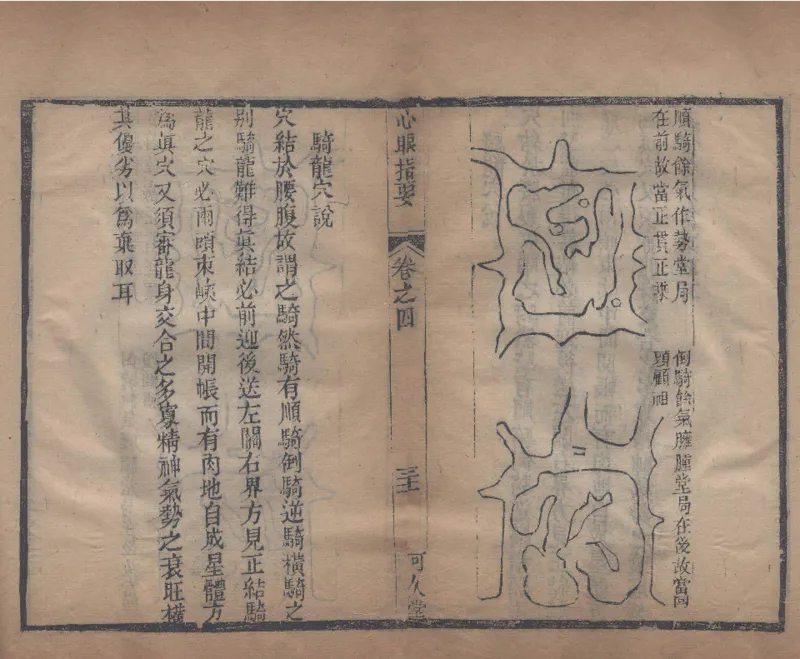 順騎餘氣作勢堂局
在前故當正貫正乘
倒騎餘氣臃腫堂局在後故當回
頭顧祖
心眼指要
卷之四
可久堂
騎龍穴說
穴結於腰腹故謂之騎然騎有順騎倒騎逆騎橫騎之
別騎龍難得眞結必前迎後送左關右界方見正結騎
龍之穴必兩頭束峽中間開帳而有肉地自成星體方
為眞穴又須審龍身交合之多寡精神氣勢之衰旺權
其優劣以爲棄取耳